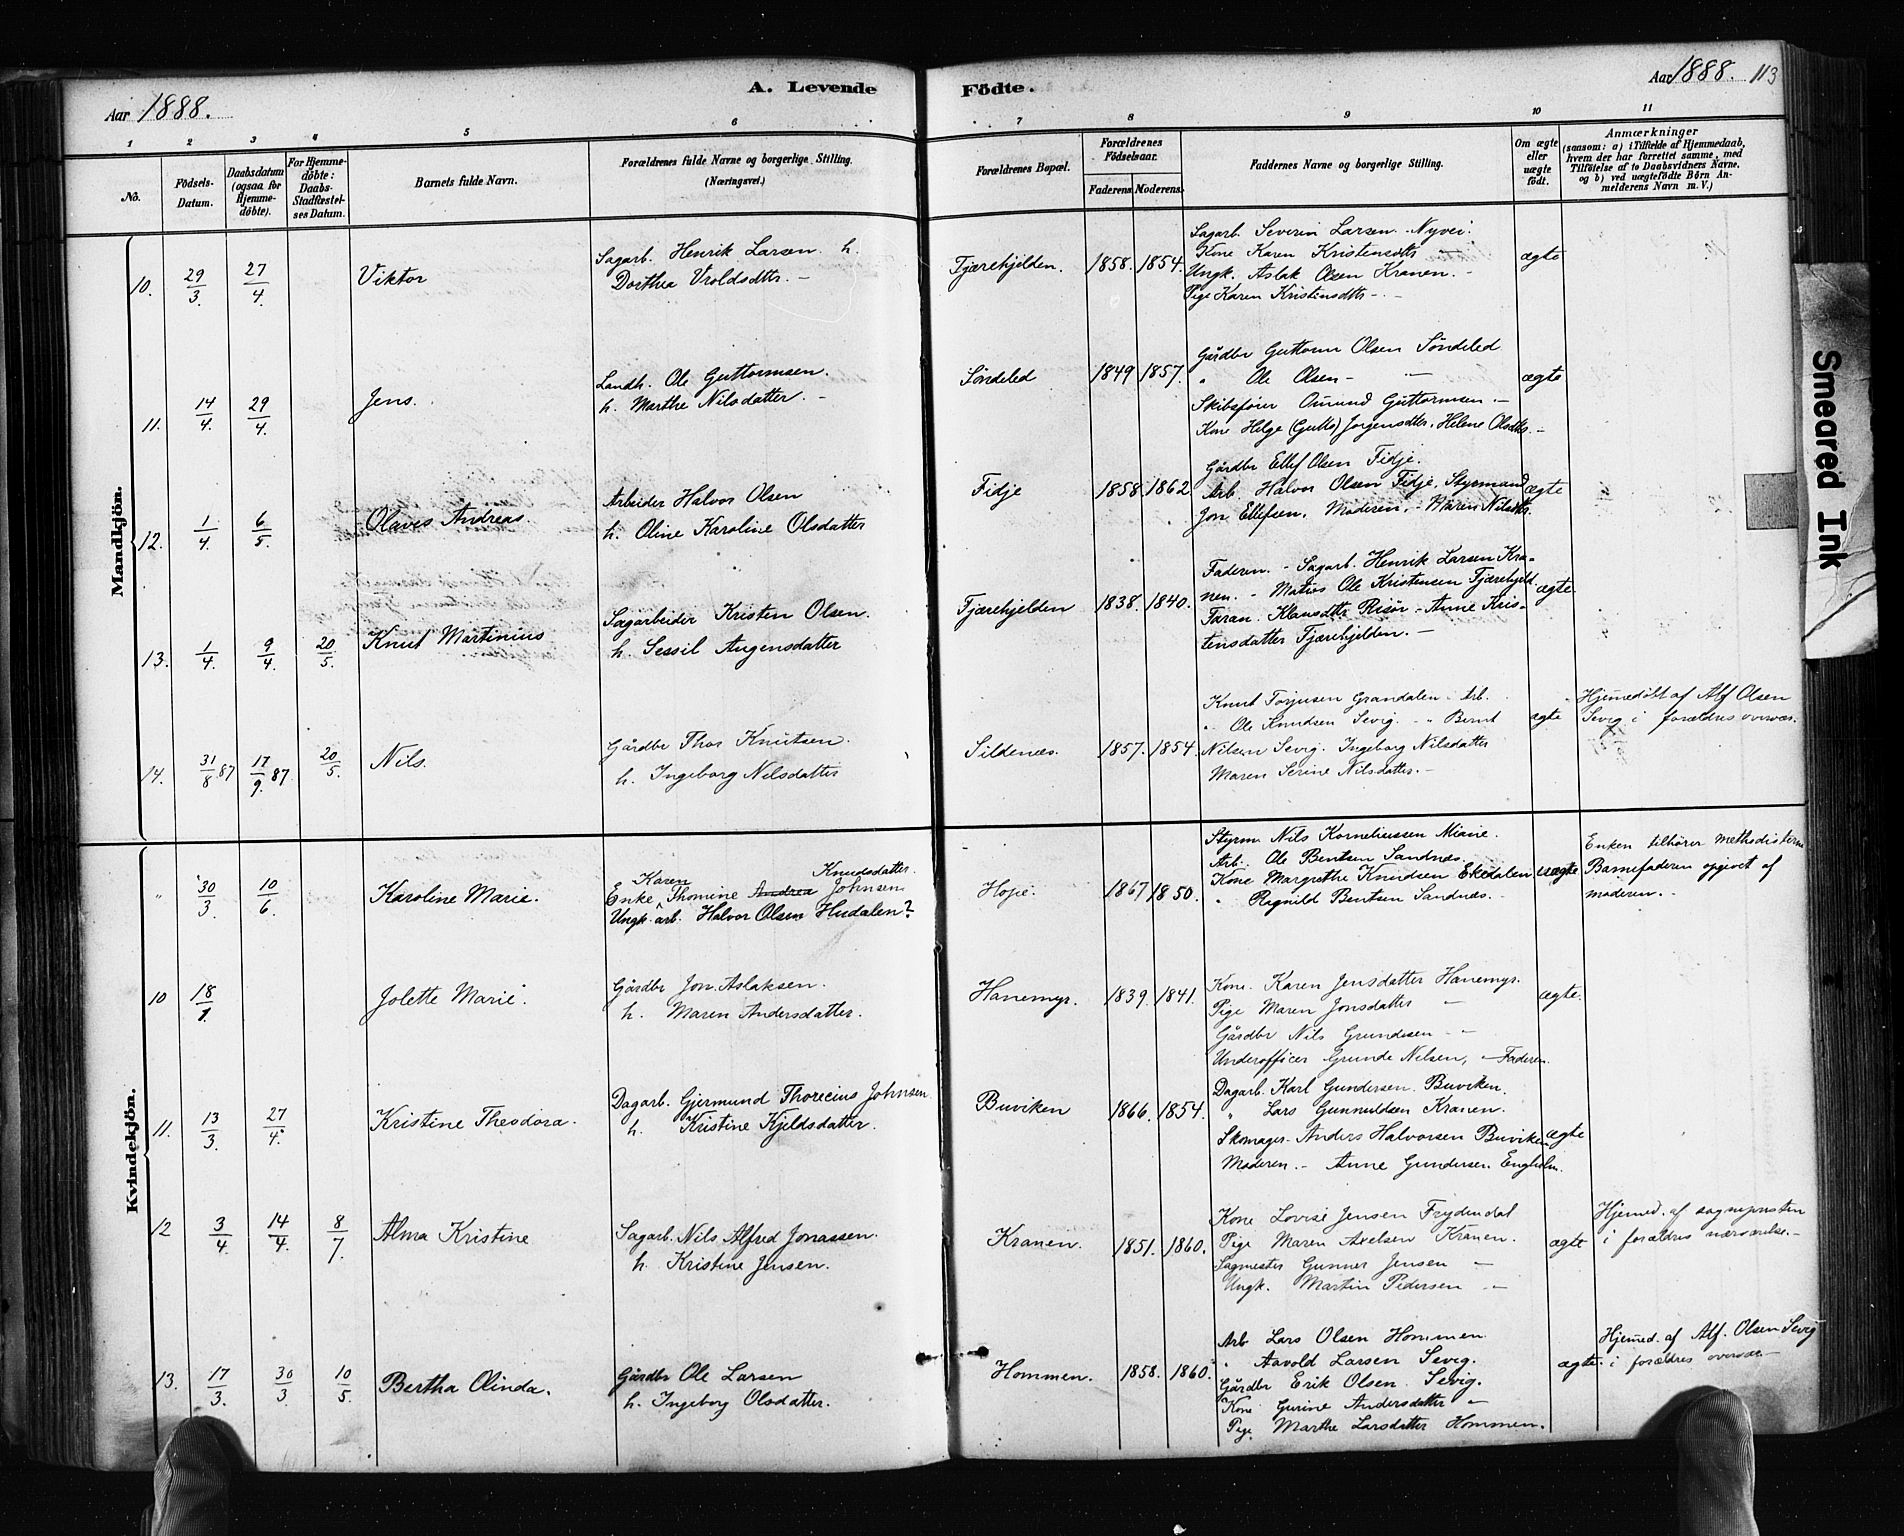 Aar 1888.
A. Levende
Födte.
Aar 1888. 113
1 2 3 4 5 6 7 8 9 10 11
No.
Födsels-Datum.
Daabsdatum (ogsaa for Hjemmedöbte).
For Hjemmedöbte: Daabs-Stadfæstelses Datum.
Barnets fulde Navn.
Forældrenes fulde Navne og borgerlige Stilling.
(Næringsvei.)
Forældrenes Bopæl.
Forældrenes Födselsaar.
Faderens. Moderens.
Faddernes Navne og borgerlige Stilling.
Om ægte eller uægte födt.
Anmærkninger
(saasom: a) i Tilfælde af Hjemmedaab, hvem der har forrettet samme, med Tilföielse af to Daabsvidners Navne, og b) ved uægtefödte Börn Anmelderens Navn m. V.)
Mandkjön.
10. 29/3. 27/4 Viktor
Sagarb. Henrik Larsen. h.
Dorthea Vroldsdtr. -
Tjærehjelden. 1858. 1854.
Sagarb. Severin Larsen. Nyvei.
Kone Karen Kristensdtr -
Ungk. Aslak Olsen Kranen. -
Pige Karen Kristensdtr - -
ægte
11. 14/4. 29/4 Jens.
Landh. Ole Guttormsen.
h. Marthe Nilsdatter. -
Söndeled 1849 1857.
Gårdbr Guttorm Olsen Söndeled
" Ole Olsen - -
Skibsförer Omund Guttormsen. -
Kone Helge (Gutto) Jorgensdtr. Helene Olsdtr. -
ægte
12. 1/4. 6/5 Olaves Andreas.
Arbeider Halvor Olsen
h. Oline Karoline Olsdatter
Fidje 1858 1862
Gårdbr Ellef Olsen Fidje.
Arb. Halvor Olsen Fidje, Styrmand
Jon Ellefsen, Moderen, - Maren Nilsdtr.
ægte
13. 1/4. 9/4 20/5. Knut Martinius
Sagarbeider Kristen Olsen.
h. Sessil Augensdatter
Tjærehjelden 1838. 1840.
Faderen. - Sagarb. Henrik Larsen Kra-
nen. - Matros Ole Kristensen Tjærehjeld.
Taran. Klausdtr Risör - Anne Kris-
tensdatter Tjærehjelden. -
ægte
14. 31/8 87 17/9. 87 20/5. Nils.
Gårdbr Thor Knutsen.
h. Ingeborg Nilsdatter
Sildenæs. 1857. 1854.
Knut Torjusen Grandalen. Arb.
" Ole Knudsen Sevig. - " Bernt
Nilsen Sevig. Ingeborg Nilsdatter
Maren Serine Nilsdatter. -
ægte
Hjemedöbt af Alf Olsen
Sevig i forældres overvær.
Kvindekjön.
" 30/3. 10/6. Karoline Marie.
Karen Knudsdatter.
Enke Thomine Andrea Johnsen
Ungk. arb. Halvor Olsen Hudalen?
Hope. 1867 1850.
Styrm Nils Korneliussen Miane.
Arb. Ole Bentsen Sandnæs.
Kone Margrethe Knudsen Ekedalen
" Ragnild Bentsen Sandnæs. -
uægte
Enken tilhörer Methodisterne
Barnefaderen opgivet af
moderen. -
10 18/1. Jolette Marie.
Gårdbr Jon Aslaksen.
h. Maren Andersdatter.
Hanemyr. 1839. 1841.
Kone. Karen Jensdatter Hanemyr.
Pige Maren Jonsdatter "
Gårdbr Nils Grundesen - "
Underofficer Grunde Nilsen, - Faderen.
ægte.
11. 13/3. 27/4. Kristine Theodora.
Dagarb. Gjermund Thorecius Johnsen
h. Kristine Kjeldsdatter.
Buviken 1866. 1854.
Dagarb. Karl Gundersen. Buviken.
" Lars Gunnuldsen Kranen.
Skomager. Anders Halvorsen Buviken
Moderen. - Anne Gundersen Engholm.
ægte
12 3/4. 14/4. 8/7. Alma Kristine
Sagarb. Nils Alfred Jonassen.
h. Kristine Jensen.
Kranen. 1851. 1860.
Kone Lovise Jensen Frydendal
Pige Maren Axelsen Kranen.
Sagmester Gunner Jensen -
Ungk. Martin Pedersen -
ægte
Hjemed. af sognepresten
i forældres nærværelse. -
13. 17/3. 30/3 10/5 Bertha Olinda.
Gårdbr Ole Larsen
h. Ingeborg Olsdatter.
Hommen. 1858. 1860.
Arb Lars Olsen Hommen.
" Aavold Larsen Sevig.
Gårdbr Erik Olsen. Sevig.
Kone Gurine Andersdatter "
Pige. Marthe Larsdatter Hommen.
ægte.
Hjemed. af Alf. Olsen Sevig
i forældres overvær. -
Smeared Ink